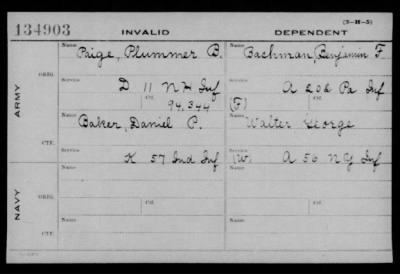 (3-H-5)
134903 INVALID DEPENDENT
Name Name
Paige, Plummer B. Bachman, Benjamin F.
ORIG.
Service Service
D 11 N H Inf A 202 Pa Inf
Ctf. Ctf.
94,344 (F)
ARMY
Name Name
Baker, Daniel P. Walter George
CTF.
Service Service
K 57 Ind Inf (W) A 56 N Y Inf
Name Name
ORIG.
Ctf. Ctf.
NAVY
Name Name
CTF.